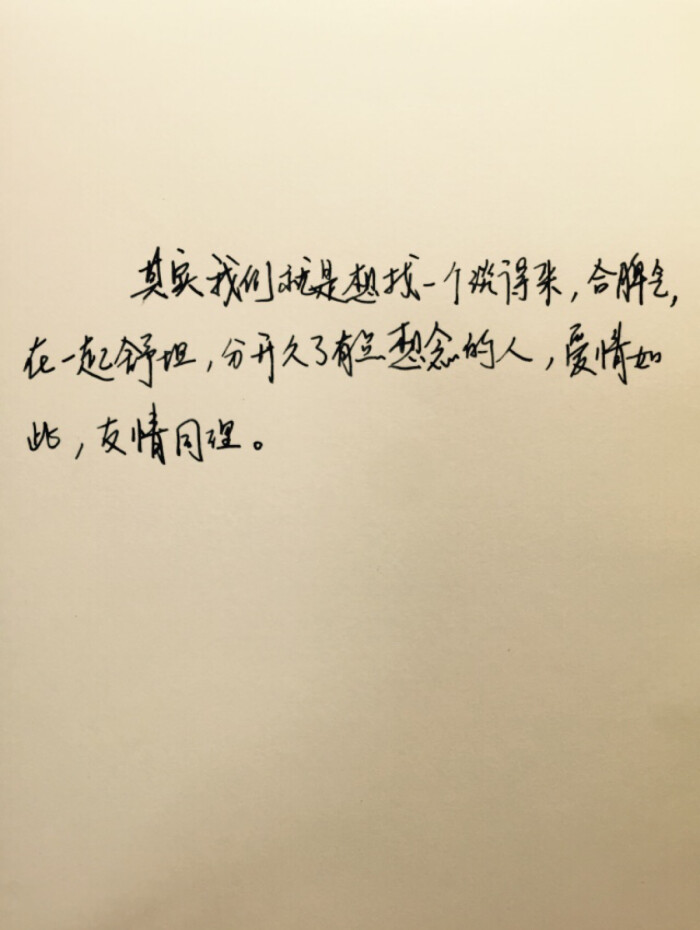 其实我们就是想找一个谈得来，合脾气，
在一起舒坦，分开久了有点想念的人，爱情如
此，友情同理。